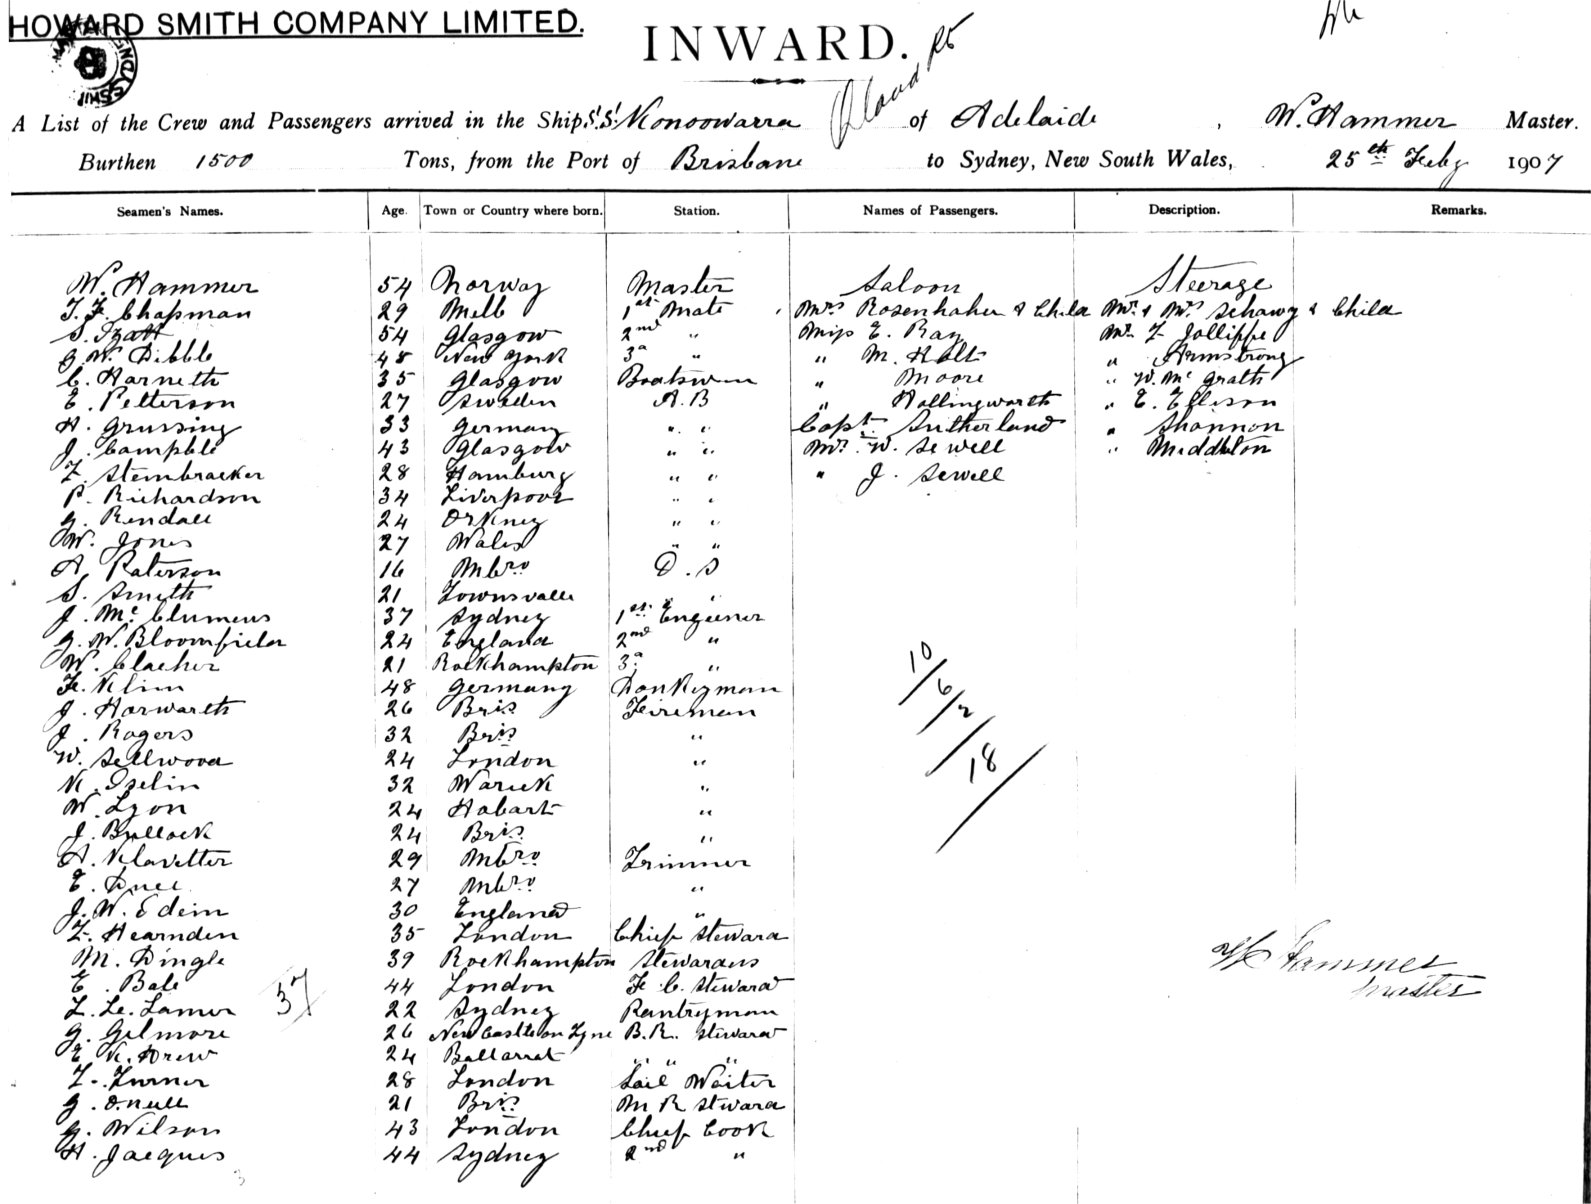 HOWARD SMITH COMPANY LIMITED.
INWARD.
A List of the Crew and Passengers arrived in the Ship S.S. Konoowarra of Adelaide, W. Hammer Master.
Burthen 1500 Tons, from the Port of Brisbane to Sydney, New South Wales, 25th Feby 1907
Seamen's Names. Age. Town or Country where born. Station. Names of Passengers. Description. Remarks.
W. Hammer 54 Norway Master Saloon Steerage
T. F. Chapman 29 Melb 1st Mate Mrs Rosenhahn & Child Mr & Mrs Schawy & Child
S. Pratt 54 Glasgow 2nd " Miss E. Ray Mr. F Jolliffe
G. W. Dibble 48 New York 3d " " M. Holt " Armstrong
C. Harneth 35 Glasgow Boatswin " Moore " W. Mc Grath
E. Petterson 27 Sweden A.B " Hollingworth " E. Ellison
H. Grussing 33 Germany " " Capt. Sutherland " Shannon
J. Campble 43 Glasgow " " Mr. W. Sewell " Middleton
F. Steinbraeker 28 Hamburg " " " J. Sewell
P. Richardson 34 Liverpool " "
G. Rendall 24 Orkney " "
W. Jones 27 Wales " "
A. Paterson 16 Mbro O.S
S. Smith 21 Townsvalle " "
J. Mc Clumens 37 Sydney 1st Engeener
G. W. Bloomfield 24 England 2nd "
W. Clacher 21 Rockhampton 3d "
F. Klim 48 Germany Donkeyman
J. Harwarth 26 Bris Fireman
J. Rogers 32 Bris "
W. Sellwood 24 London "
K. Iselin 32 Warick "
W. Lyon 24 Hobart "
J. Bullock 24 Bris "
A. Klavetter 29 Mbro Trimmer
E. 27 Mbro "
J. W. Edein 30 England "
F. Hearnden 35 London Chief Steward
M. Dingle 39 Rockhampton Stewardess
E. Bale 44 London F. C. Steward
L. Le. Lamer 22 Sydney Pantryman
G. Gilmore 26 New Castle on Tyne B.R. Steward
E. K. Drew 24 Ballarat " " "
F. Turner 28 London Sail Waiter
G. Oneill 21 Bris M R Steward
G. Wilson 43 London Chief Cook
H. Jacques 44 Sydney 2nd "
37
10/
6/
2/
18/
W Hammer
Master